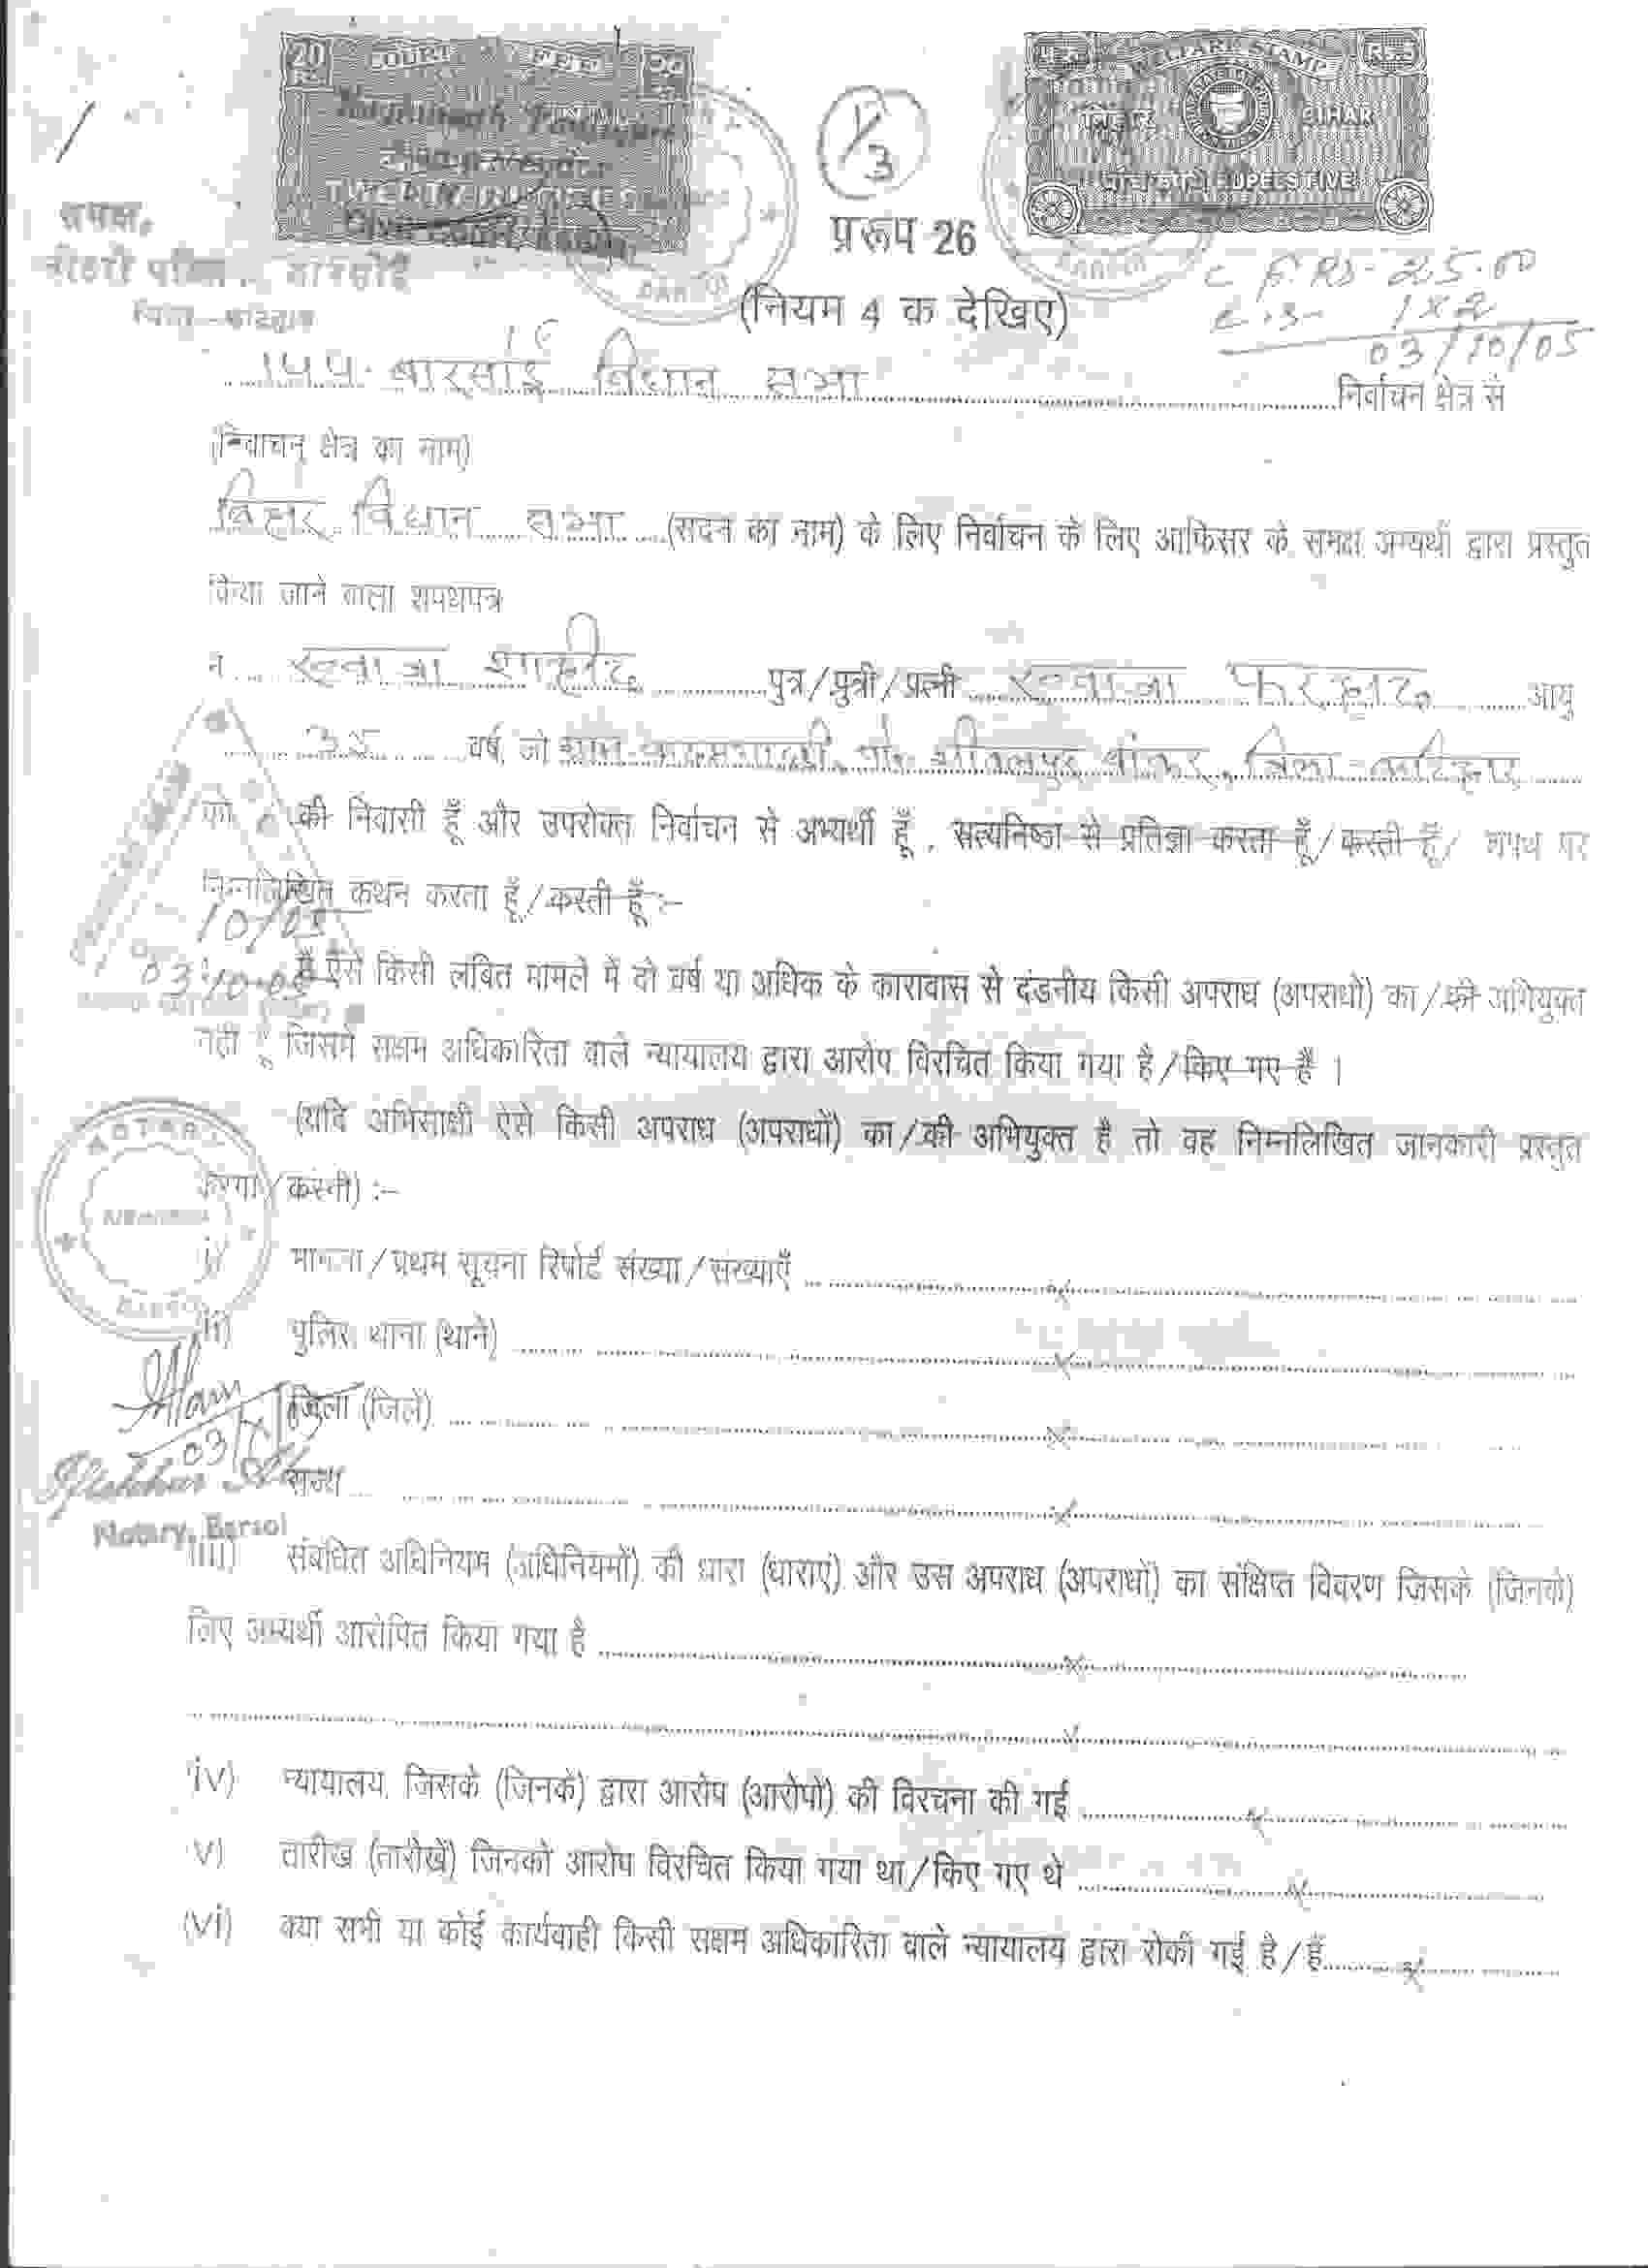 20 COURT FEE 20
WELFARE STAMP
बिहार BIHAR
RUPEES FIVE
1/3
समक्ष,
प्ररूप 26
C.F. Rs- 25.00
(नियम 4 क देखिए)
1x2
03/10/05
बारसोई विधान सभा निर्वाचन क्षेत्र से
(निर्वाचन क्षेत्र का नाम)
बिहार विधान सभा (सदन का नाम) के लिए निर्वाचन के लिए आफिसर के समक्ष अभ्यर्थी द्वारा प्रस्तुत
किया जाने वाला शपथपत्र
मैं ख्वाजा शाहीद पुत्र/पुत्री/पत्नी ख्वाजा फरहाद आयु
वर्ष, जो ग्राम जिला- कटिहार
का की निवासी हूँ और उपरोक्त निर्वाचन से अभ्यर्थी हूँ, सत्यनिष्ठा से प्रतिज्ञा करता हूँ/करती हूँ/ शपथ पर
निम्नलिखित कथन करता हूँ/करती हूँ :-
मैं ऐसे किसी लंबित मामले में दो वर्ष या अधिक के कारावास से दंडनीय किसी अपराध (अपराधों) का/की अभियुक्त
03/10-05
नहीं हूँ जिसमें सक्षम अधिकारिता वाले न्यायालय द्वारा आरोप विरचित किया गया है/किए गए हैं ।
(यदि अभिसाक्षी ऐसे किसी अपराध (अपराधों) का/की अभियुक्त है तो वह निम्नलिखित जानकारी प्रस्तुत
करेगा/करेगी) :-
NOTARY
i) मामला/प्रथम सूचना रिपोर्ट संख्या/संख्याएँ x
ii) पुलिस थाना (थाने) x
जिला (जिले) x
राज्य x
Notary, Barsoi
(iii) संबंधित अधिनियम (अधिनियमों) की धारा (धाराएं) और उस अपराध (अपराधों) का संक्षिप्त विवरण जिसके (जिनके)
लिए अभ्यर्थी आरोपित किया गया है x
x
iv) न्यायालय, जिसके (जिनके) द्वारा आरोप (आरोपों) की विरचना की गई x
v) तारीख (तारीखें) जिनको आरोप विरचित किया गया था/किए गए थे x
(vi) क्या सभी या कोई कार्यवाही किसी सक्षम अधिकारिता वाले न्यायालय द्वारा रोकी गई है/हैं x